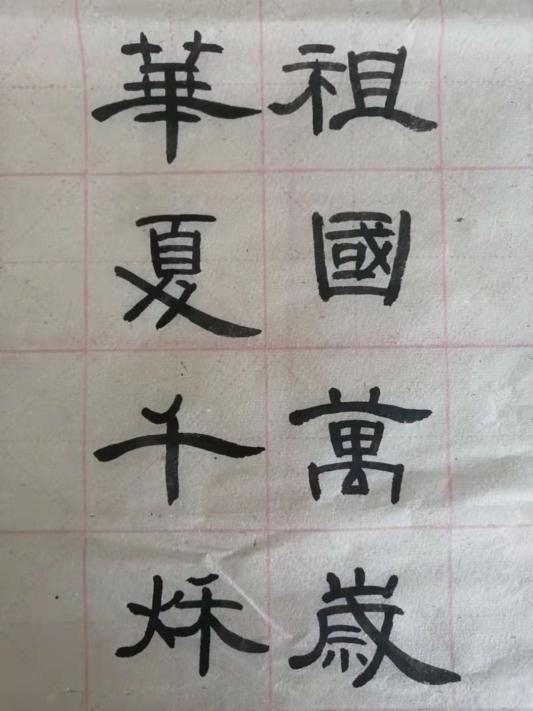 祖國萬歲
華夏千秌